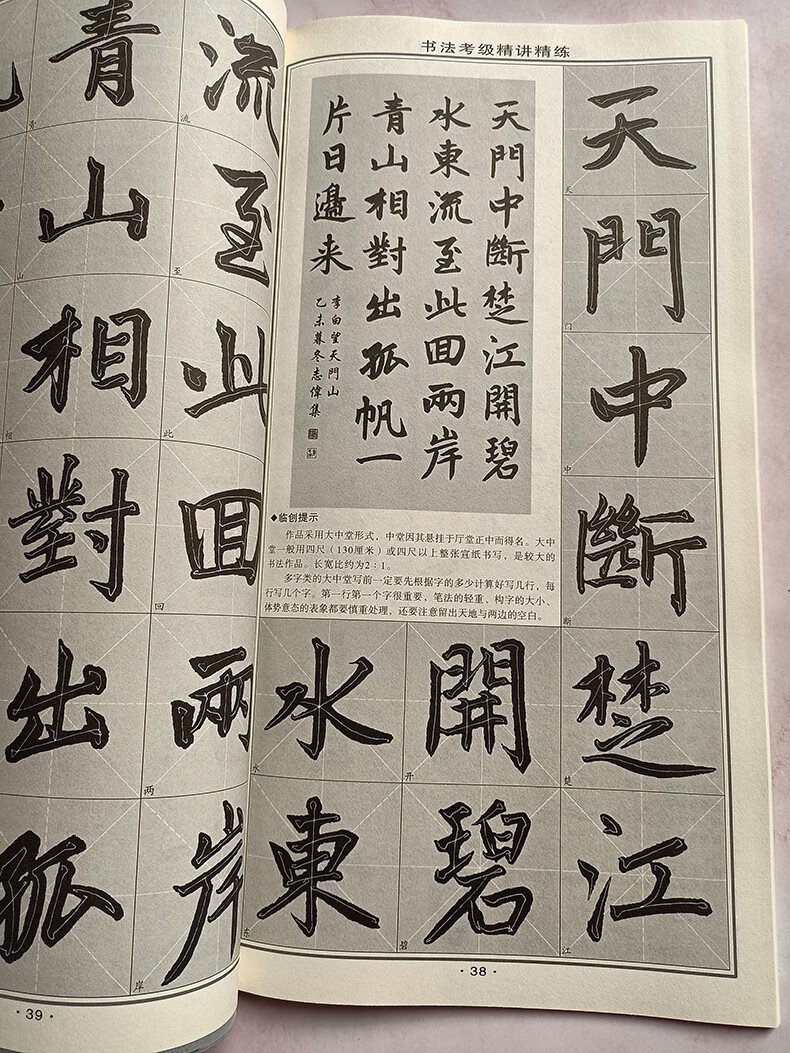 书法考级精讲精练
天門中斷楚江開碧
水東流至此回兩岸
青山相對出孤帆一
片日邊来
李白望天門山
乙未暮冬志偉集
◆临创提示
作品采用大中堂形式，中堂因其悬挂于厅堂正中而得名。大中
堂一般用四尺（130厘米）或四尺以上整张宣纸书写，是较大的
书法作品。长宽比约为2：1。
多字类的大中堂写前一定要先根据字的多少计算好写几行，每
行写几个字。第一行第一个字很重要，笔法的轻重、构字的大小、
体势意态的表象都要慎重处理，还要注意留出天地与两边的空白。
天
天
門
门
中
中
斷
断
楚
楚
江
江
開
开
碧
碧
水
水
東
东
·38·
流
流
至
至
此
此
回
回
兩
两
岸
岸
青
青
山
山
相
相
對
出
孤
·39·